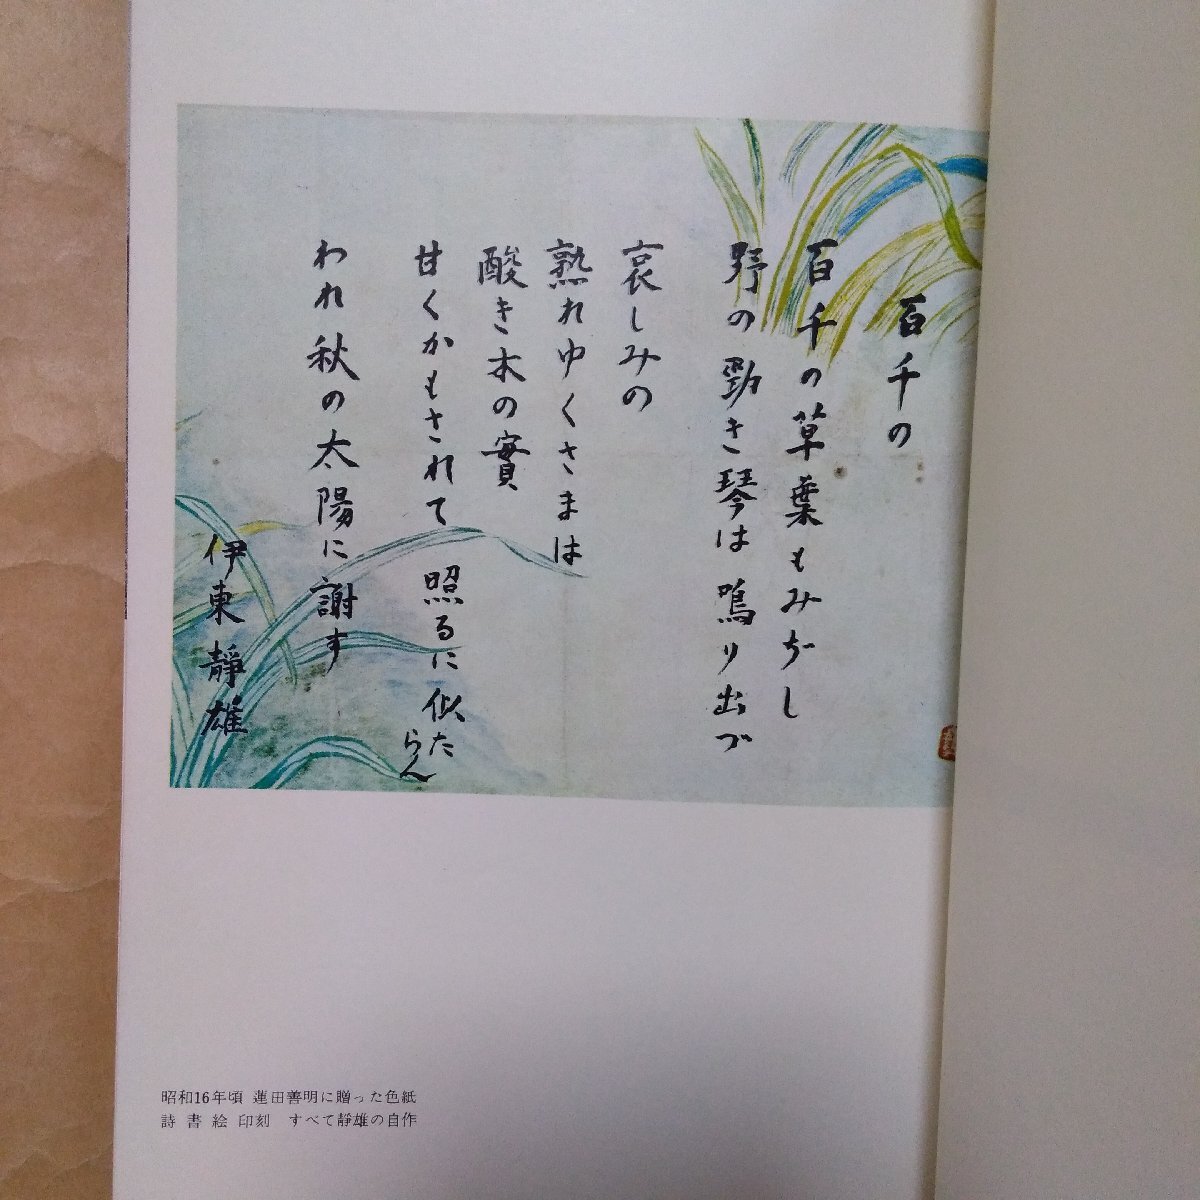 百千の
百千の草葉もみぢし
野の勁き琴は鳴り出づ
哀しみの
熟れゆくさまは
酸き木の實
甘くかもされて 照るに似たらん
われ秋の太陽に謝す
伊東靜雄
昭和16年頃 蓮田善明に贈った色紙
詩 書 絵 印刻 すべて靜雄の自作